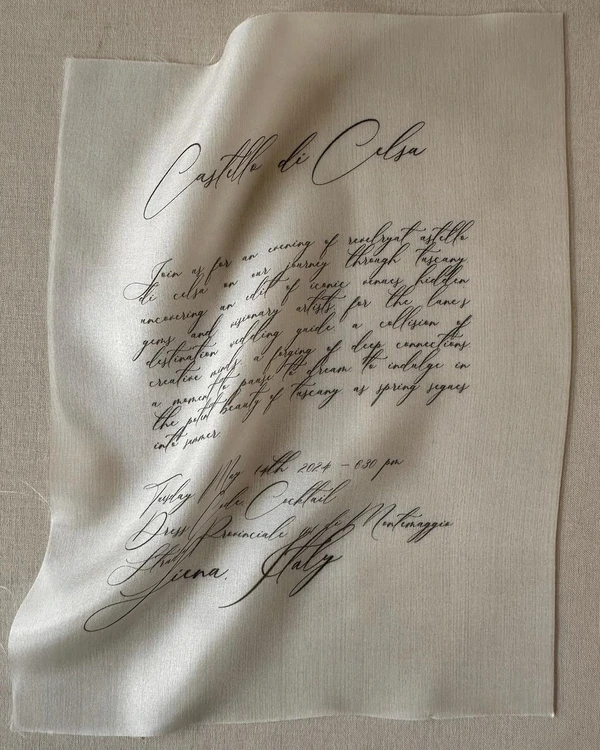 Castello di Celsa
Join us for an evening of revelryat astello
di celsa on our journey through tuscany
uncovering an edit of iconic venues hidden
gems and visionary artists for the lane's
destination wedding guide a collision of
creative minds. a forging of deep connections
a moment to pause to dream to indulge in
the potent beauty of tuscany as spring segues
into summer.
Tuesday May 14th 2024 – 6:30 pm
Dress Code Cocktail
Provinciale di Montemaggio
Siena, Italy